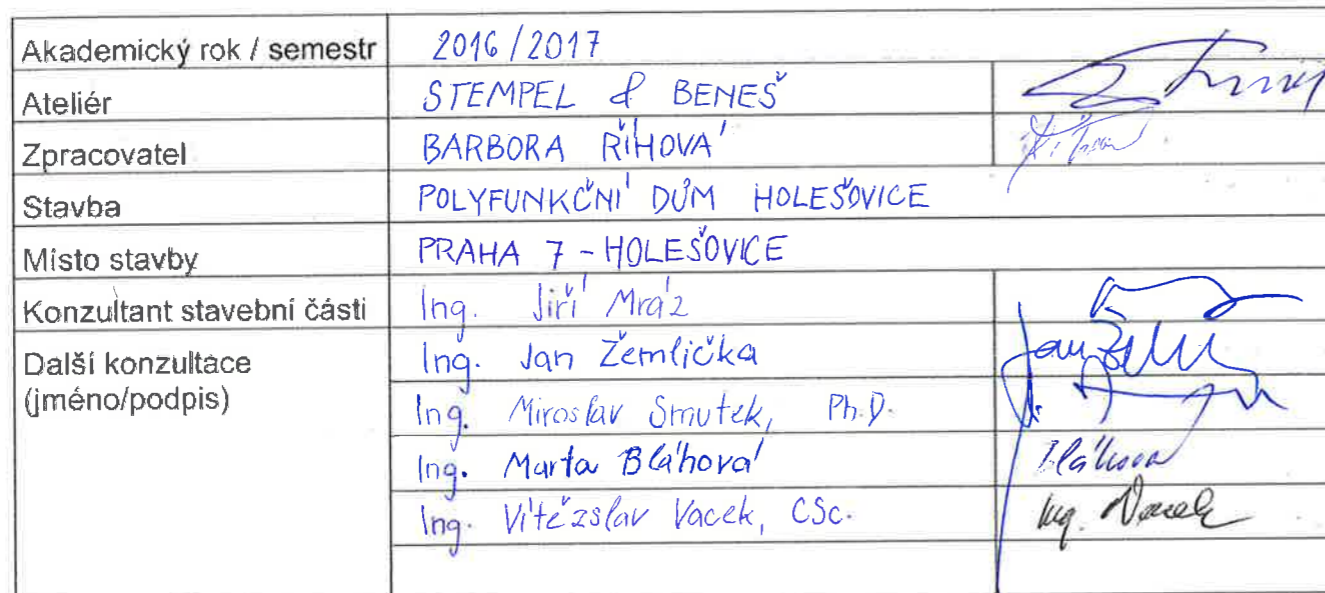 Akademický rok / semestr 2016/2017
Ateliér STEMPEL & BENEŠ
Zpracovatel BARBORA ŘÍHOVÁ
Stavba POLYFUNKČNÍ DŮM HOLEŠOVICE
Místo stavby PRAHA 7 - HOLEŠOVICE
Konzultant stavební části Ing. Jiří Mráz
Další konzultace Ing. Jan Žemlička
(jméno/podpis) Ing. Miroslav Smutek, Ph.D.
Ing. Marta Bláhová Bláhová
Ing. Vítězslav Vacek, CSc. Ing. Vacek